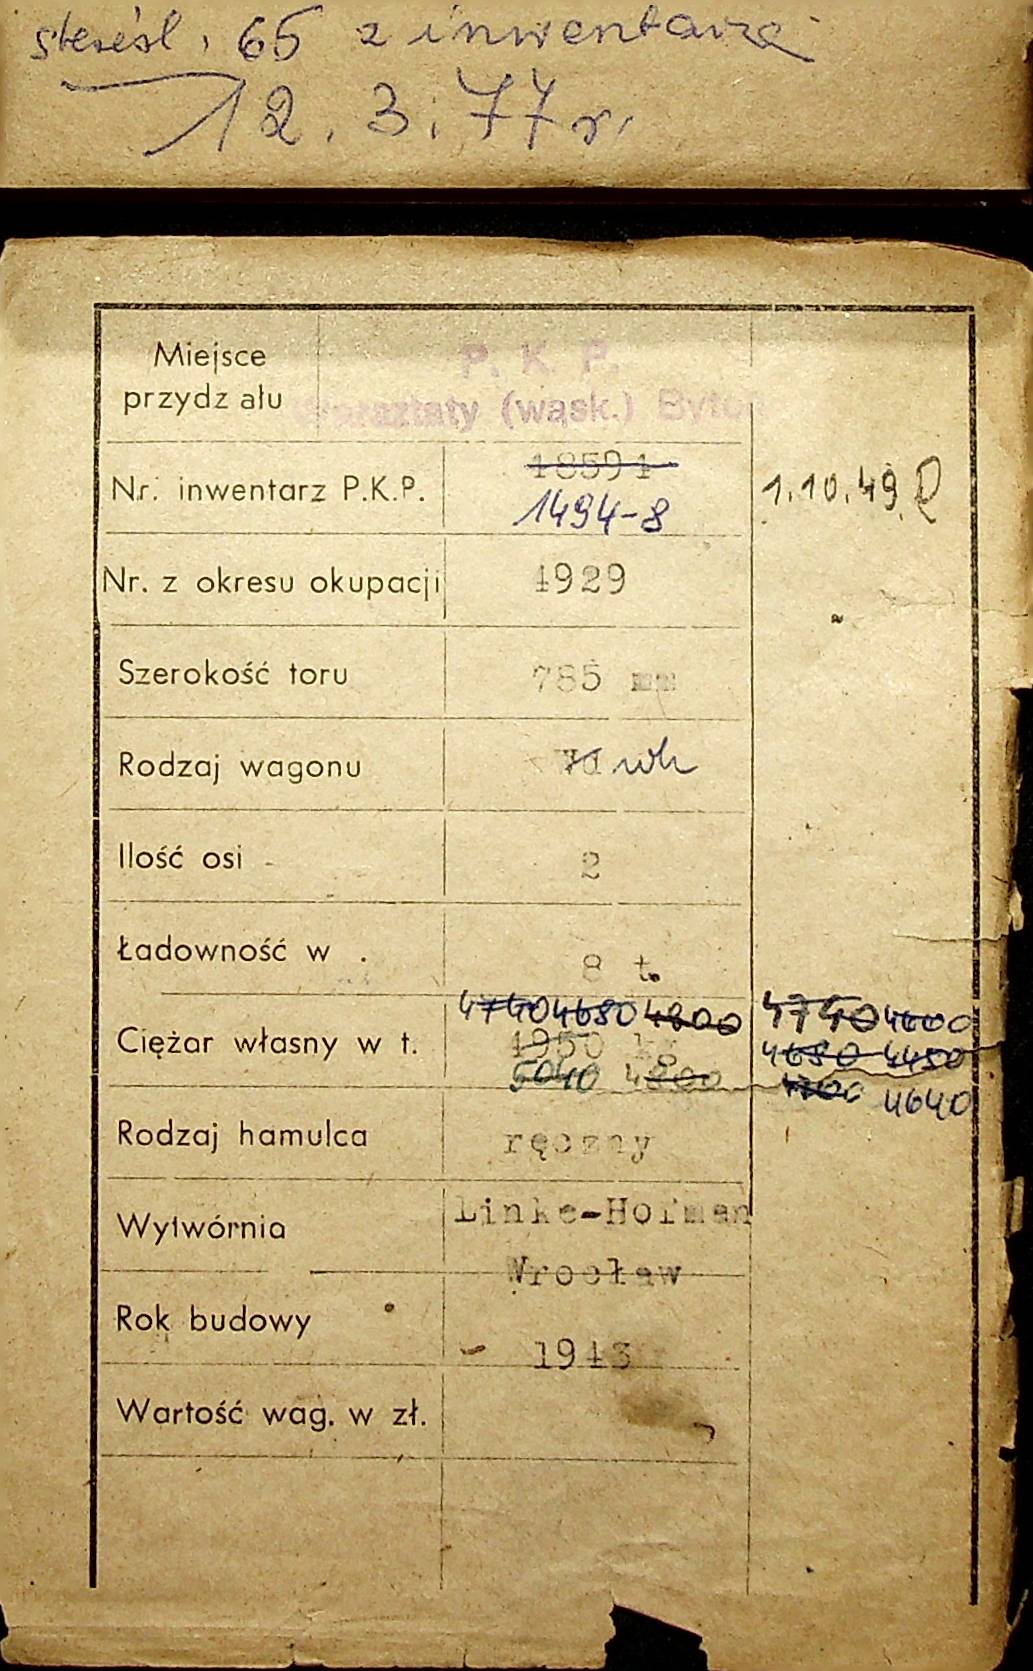 skreśl. 65 z inwentarza
12.3.77r.
Miejsce
przydz ału
P. K. P.
Warsztaty (wąsk.) Bytom
Nr. inwentarz P.K.P.
18591
1494-8
1.10.49
Nr. z okresu okupacji
4929
Szerokość toru
785 mm
Rodzaj wagonu
wh
Ilość osi
2
Ładowność w .
8 t.
Ciężar własny w t.
4740 4680 4800
4950 kg
5040 4800
4740 4600
4680 4450
4640
Rodzaj hamulca
ręczny
Wytwórnia
Linke-Hofman
Wrocław
Rok budowy
1943
Wartość wag. w zł.